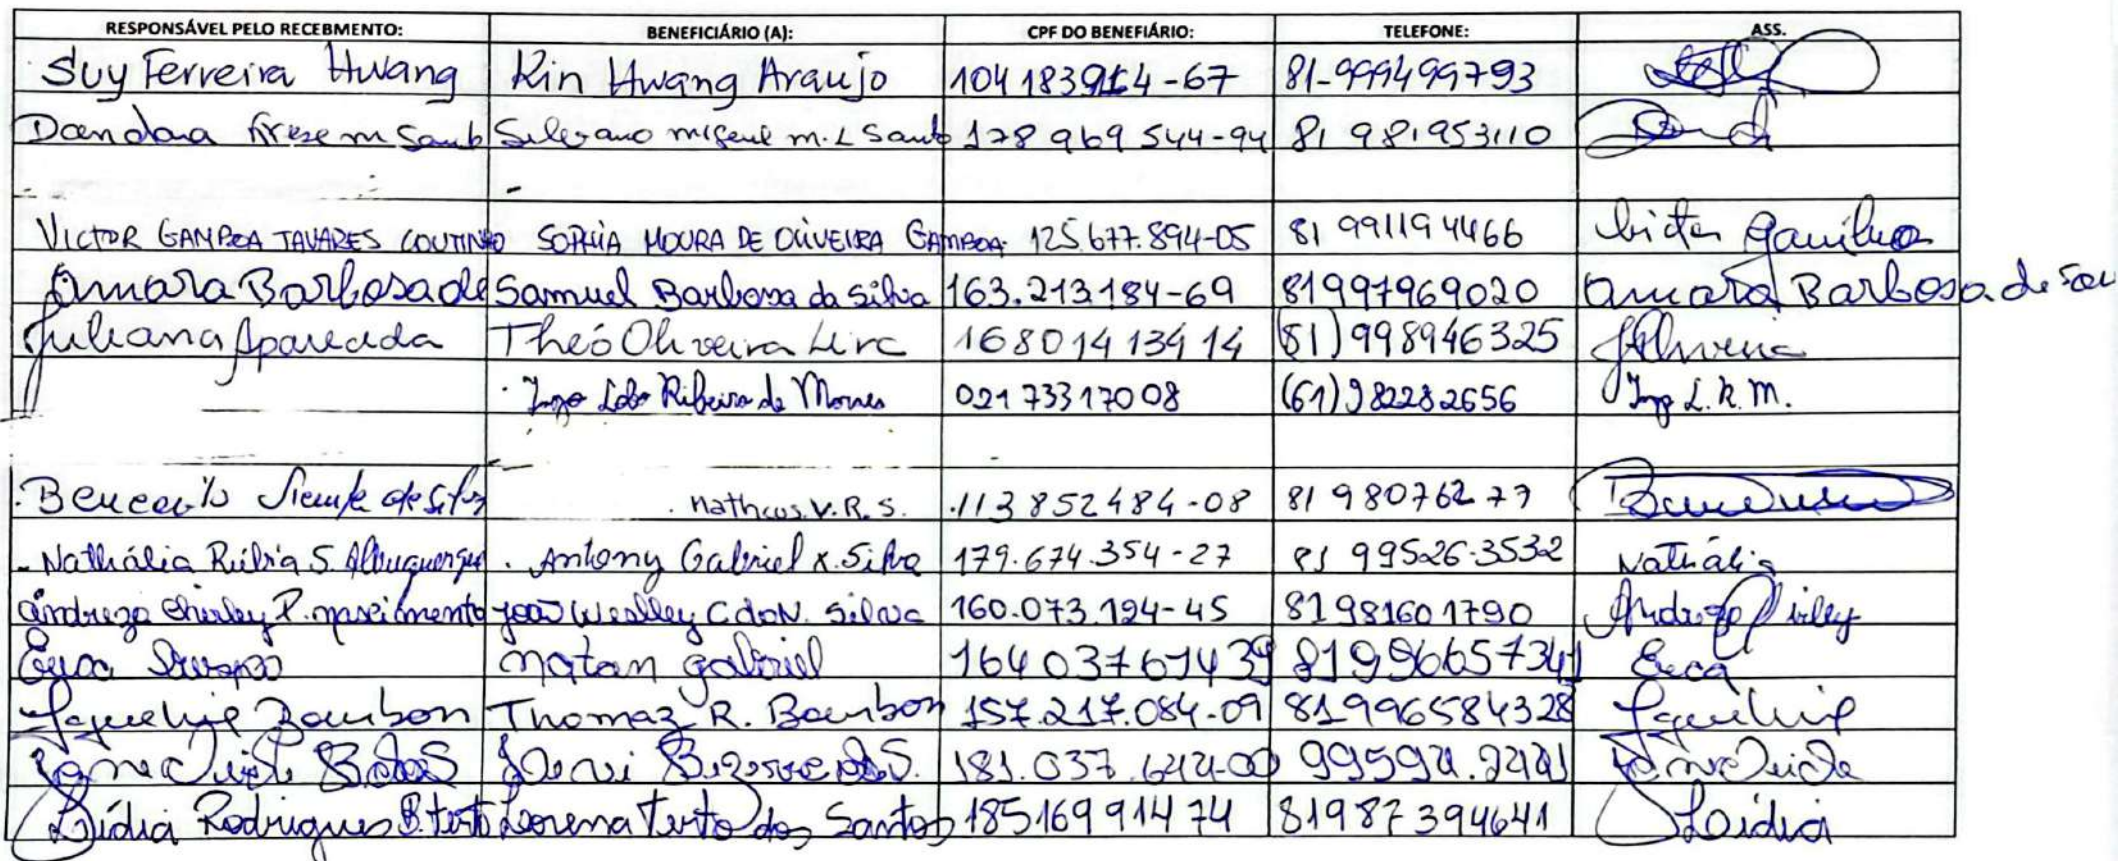 RESPONSÁVEL PELO RECEBMENTO: BENEFICIÁRIO (A): CPF DO BENEFIÁRIO: TELEFONE: ASS.
Suy Ferreira Hwang Kin Hwang Araujo 104 183914-67 81-999499793
Dandara m Santos m. L Santos 178 969 544-94 81 981953110
VICTOR GAMBOA TAVARES COUTINHO SOPHIA MOURA DE OLIVEIRA GAMBOA 125.677.894-05 81 991194466 Victor Gamboa
Amara Barbosa de Samuel Barbosa da Silva 163.213.184-69 81997969020 Amara Barbosa de Sou
Juliana Aparecida Théo Oliveira Lira 168014134 14 (81) 998946325 JOliveira
Lobo Ribeiro de Moraes 021 73317008 (61) 982282656 L. R. M.
Matheus. V. R. S. 113852484-08 81 980762 77
Nathália Rúbia S. Albuquerque Antony Gabriel X. Silva 179.674.354-27 81 99526-3532 Nathália
Andreza Shirley P. nascimento João Weslley C do N. Silva 160.073.194-45 81981601790 Andreza Shirley
Erica natan gabriel 164 037614 39 Erica
Jaqueline Bourbon Thomaz R. Bourbon 157.217.084-09 81996584328 Jaqueline
Bezerra 181.037
Lídia Rodrigues B. terto Lorena Terto dos Santos 185169 914 74 81987394641 Lídia